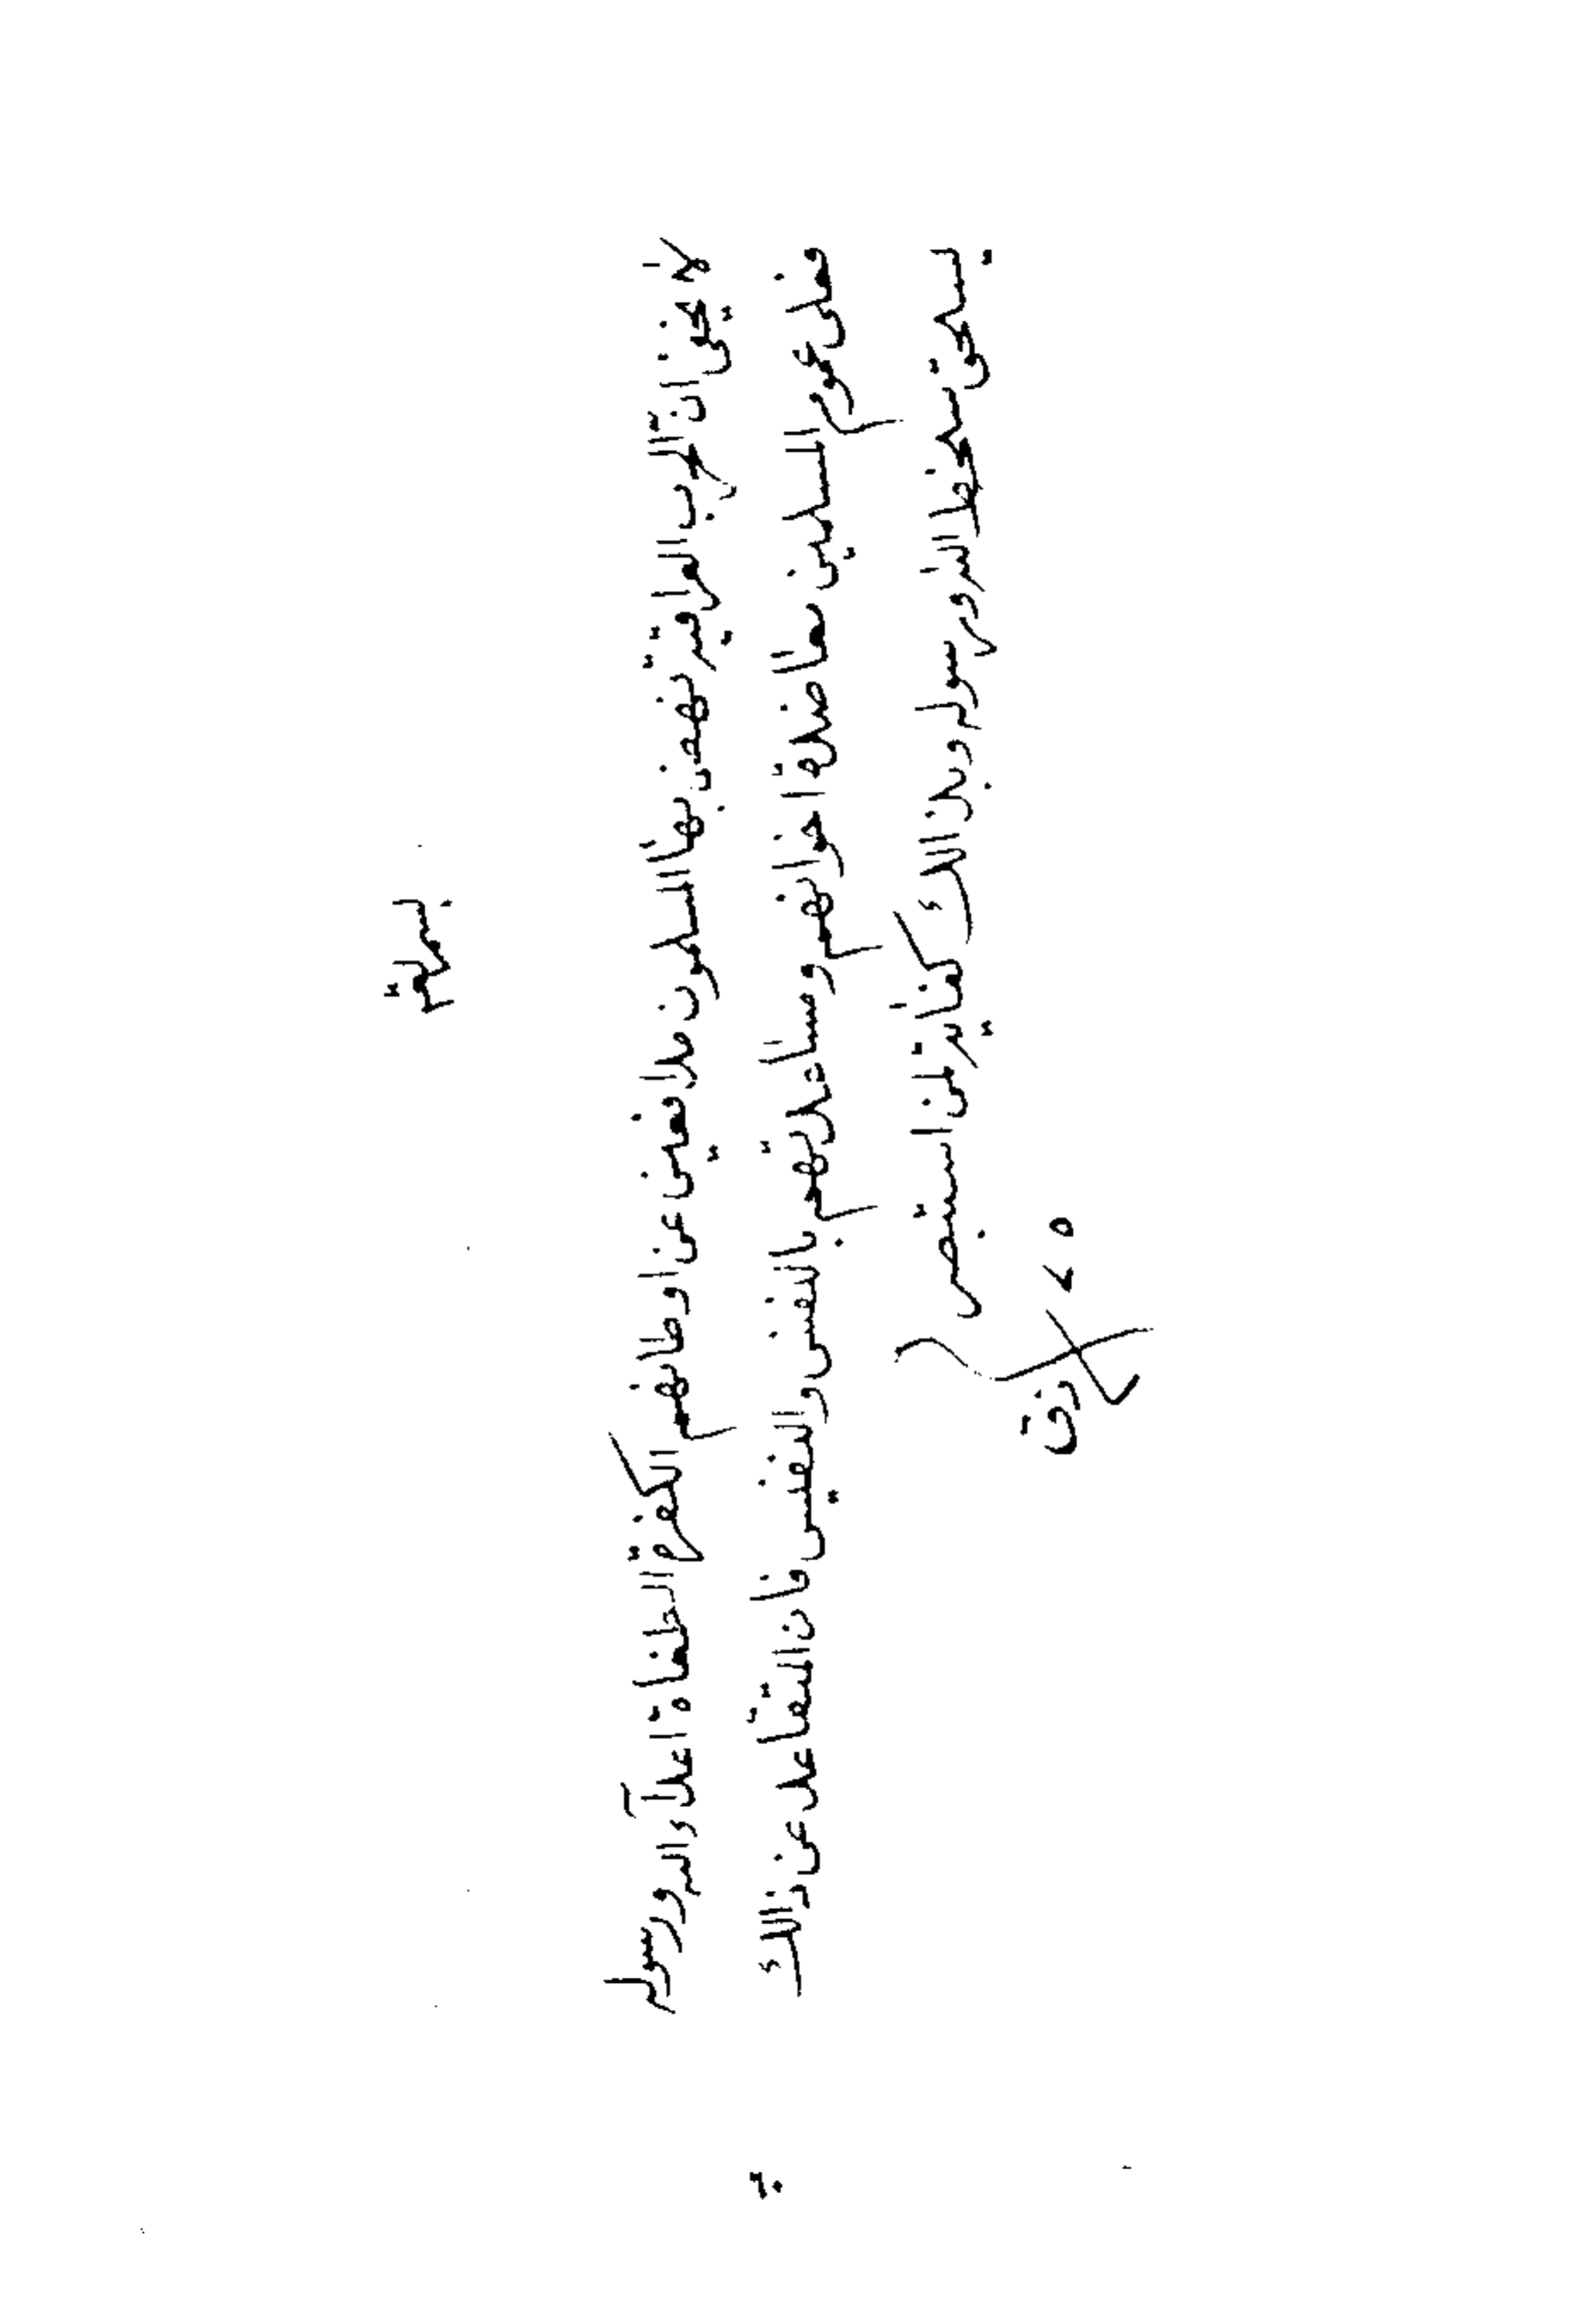 لا يخفى ان الحرب العراقية نهض بها المسلمون مدافعين عن اوطانهم الكفرة الطغاة اعداء الله ورسوله
فعلى عموم المسلمين معاضدة اخوانهم ومساعدتهم بالنفس والنفيس فان التقاعد عن ذالك
سخط الله ورسوله وبذالك كفاية لمن استبصر
٦٠